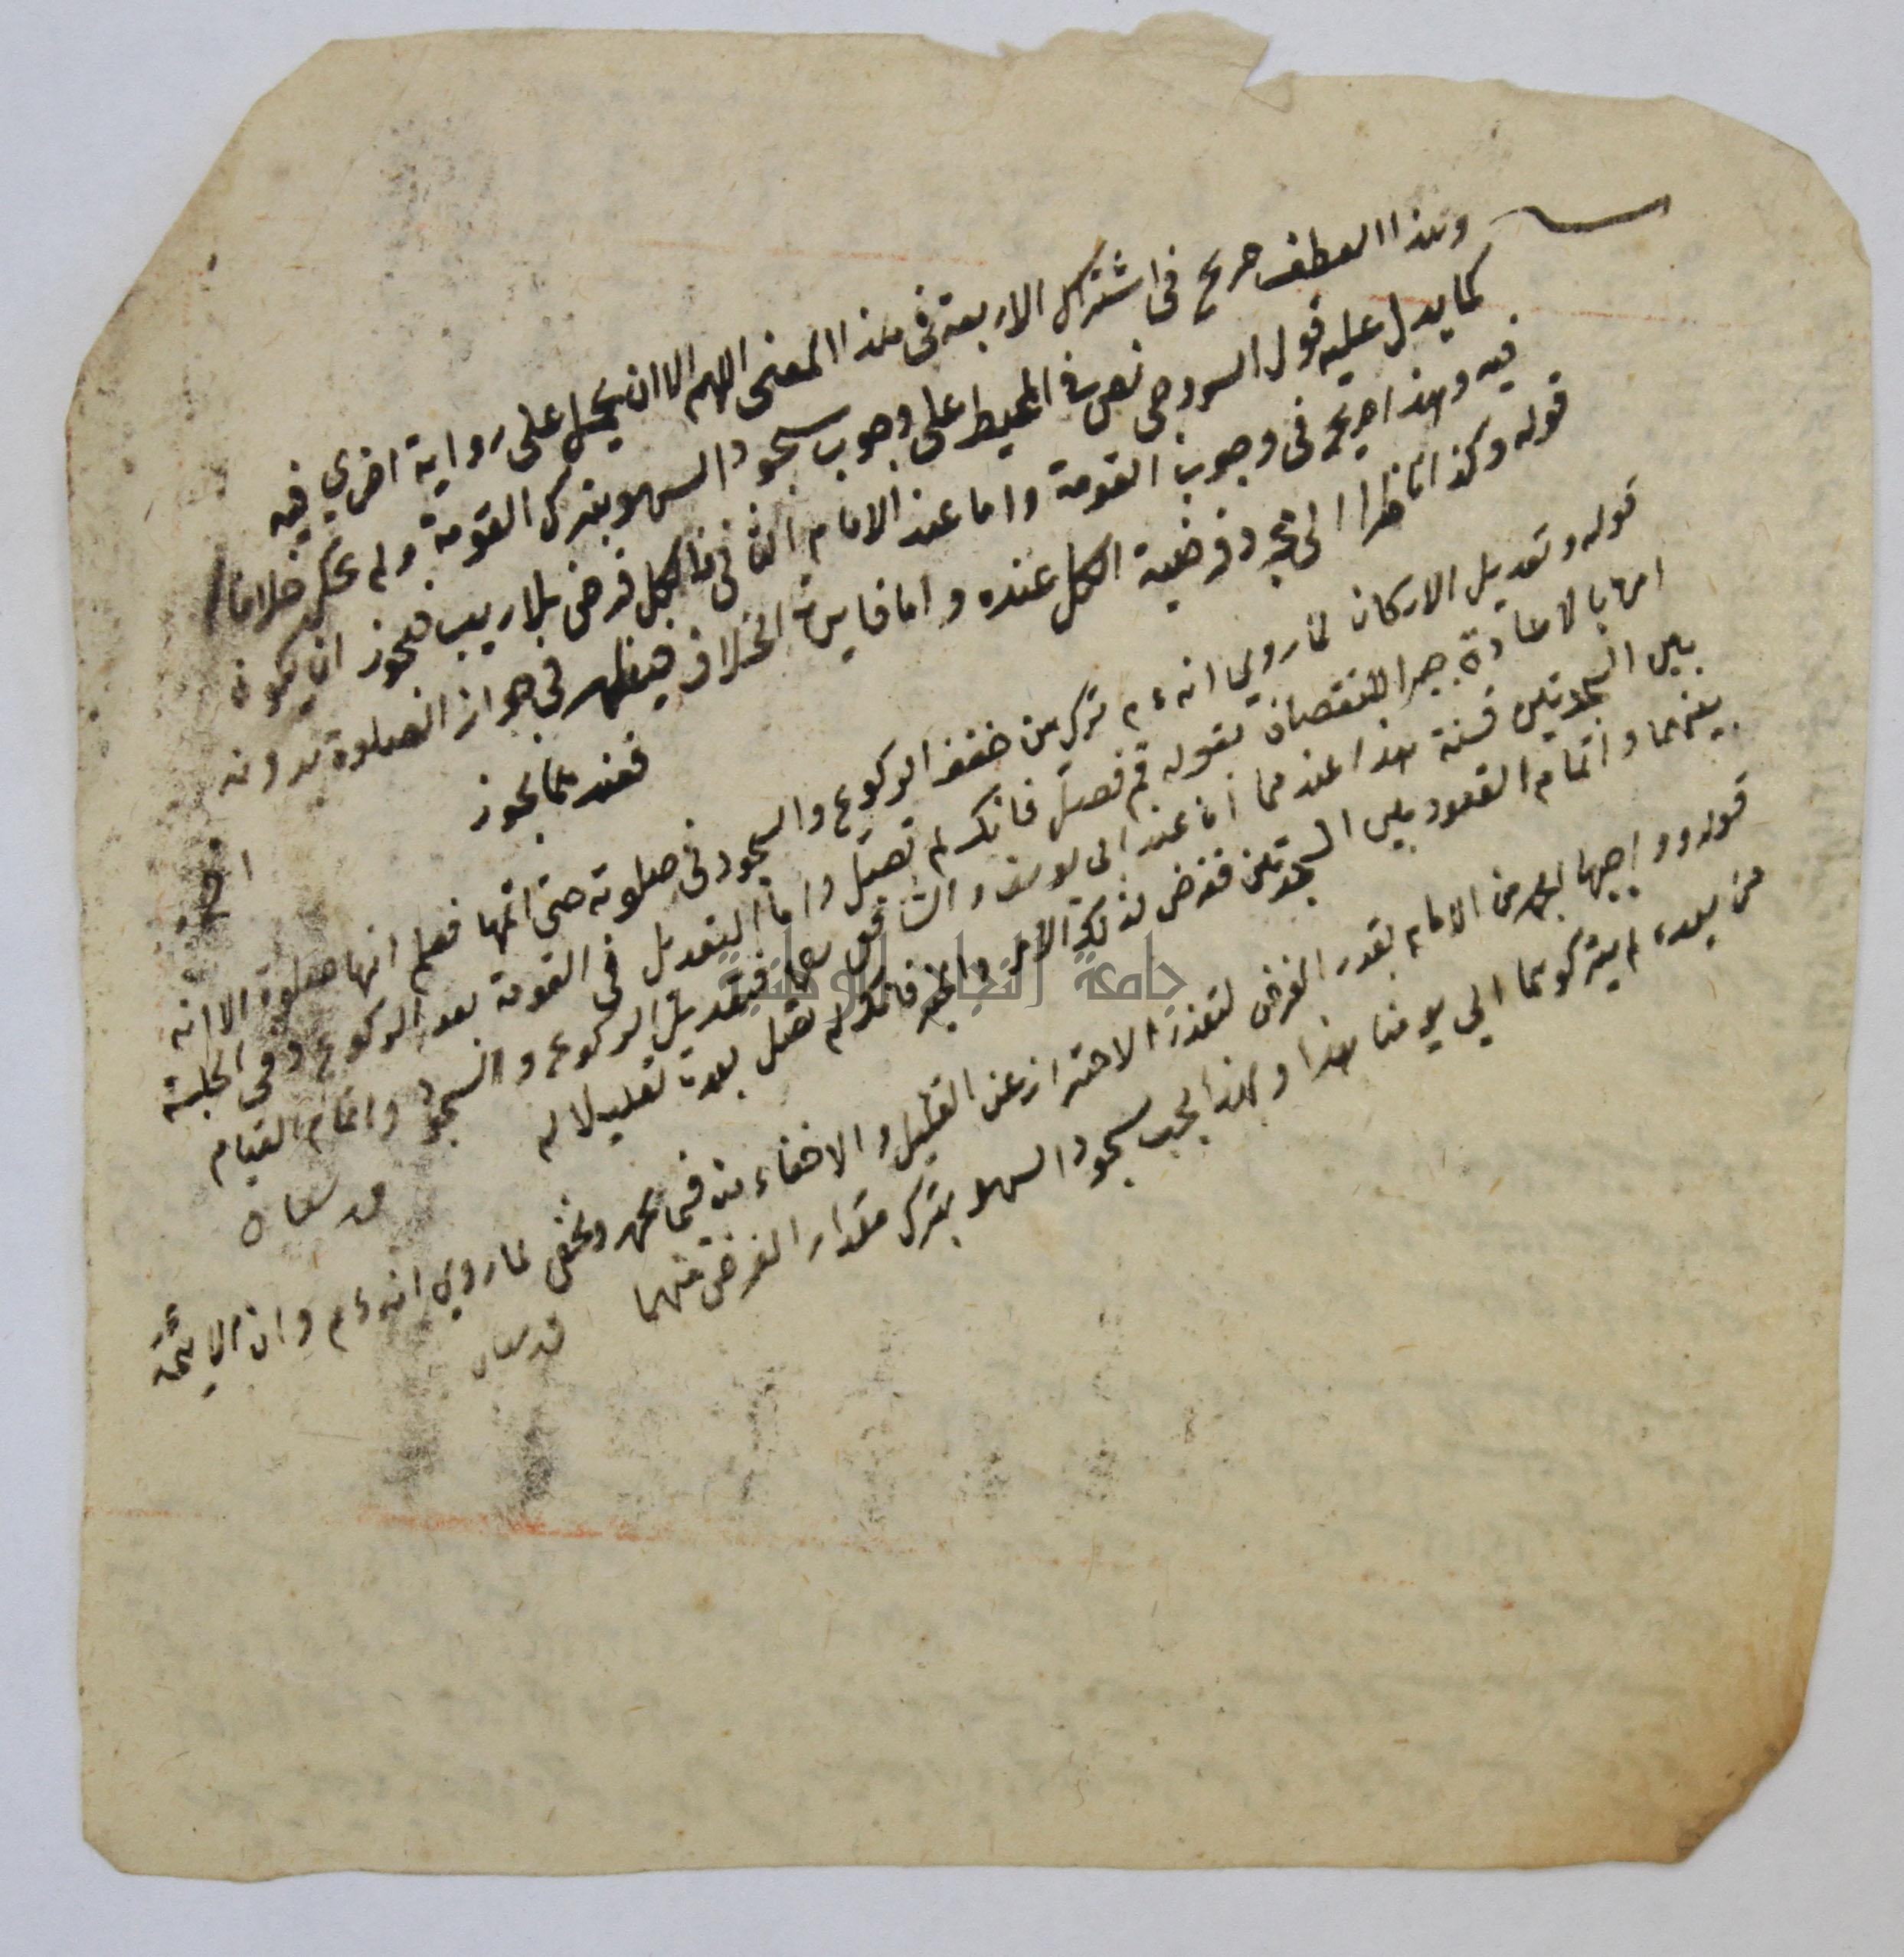 وهذا العطف صريح في اشتراك الاربعة في هذا المعنى اللهم الا ان يحمل على رواية اخري فيه
كما يدل عليه قول السروجي نص في المحيط على وجوب سجود السهو بترك القومة ولم يحك خلافا
فيه وهذا صريح في وجوب القومة واما عند الامام الثاني فالكل فرض بلا ريب فيجوز ان يكون
قوله وكذا ناظرا الى مجرد فرضية الكل عنده واما فايدة الخلاف فيظهر في جواز الصلوة بدونه
فعندهما يجوز
قوله وتعديل الاركان لما روي انه ءم ترك من خفف الركوع والسجود في صلوته حتى اتمها فعلم انها صلوة الا انه
امر بالاعادة جبرا للنقصان بقوله قم فصل فانك لم تصل واما التعديل في القومة بعد الركوع وفي الجلسة
بين السجدتين فسنة هذا عندهما اما عند ابى يوسف والشافعى فتعديل الركوع والسجود واتمام القيام
بينهما واتمام القعود بين السجدتين ففرض لذلك الامر فانك لم تصل بعده تعليلا له
قوله وواجبها الجهر من الامام بقدر الفرض لتعذر الاحتراز عن القليل والاخفاء منه فى يجهر ويخفى لما روي انه ءم وان الائمة
من بعده لم يتركوهما الي يومنا هذا ولهذا يجب سجود السهو بترك مقدار الفرض منهما
جامعة النجاح الوطنية